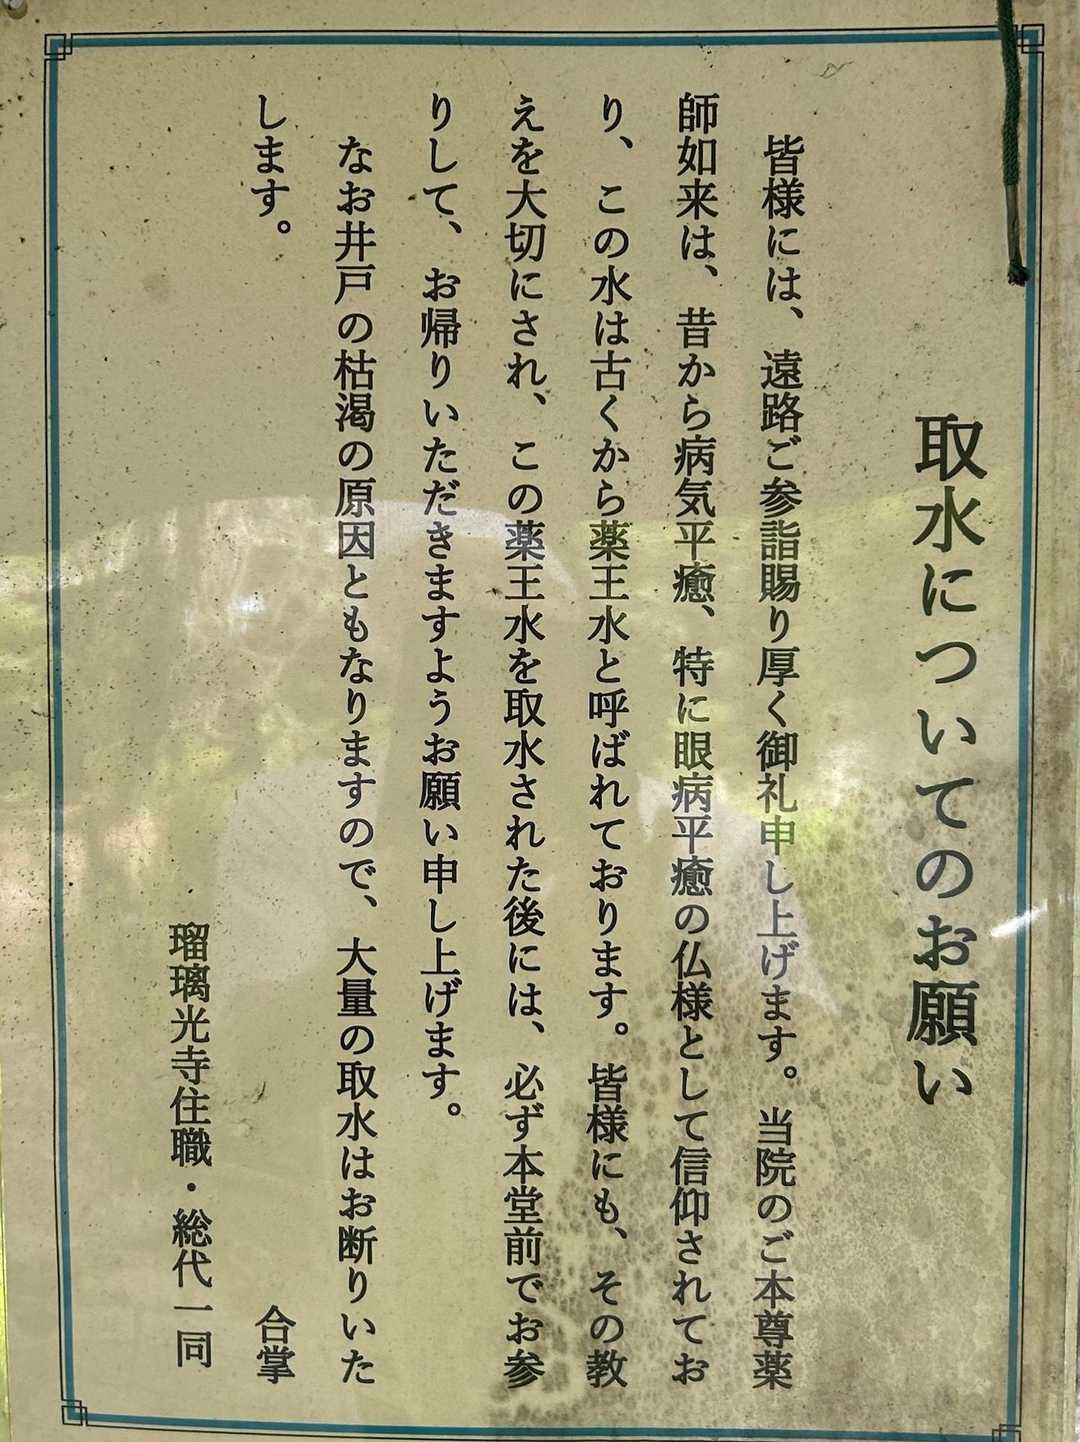 取水についてのお願い
皆様には、遠路ご参詣賜り厚く御礼申し上げます。当院のご本尊薬
師如来は、昔から病気平癒、特に眼病平癒の仏様として信仰されてお
り、この水は古くから薬王水と呼ばれております。皆様にも、その教
えを大切にされ、この薬王水を取水された後には、必ず本堂前でお参
りして、お帰りいただきますようお願い申し上げます。
なお井戸の枯渇の原因ともなりますので、大量の取水はお断りいた
します。
合掌
瑠璃光寺住職・総代一同